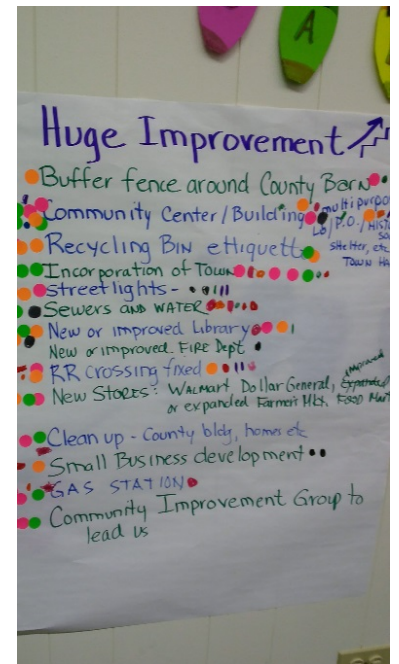 Huge Improvement
Buffer fence around County Barn
Community Center/Building
multipurpo
Lb/P.O./Histo
Shelter, etc
Town Ha
Recycling Bin ettiquett
Incorporation of Town
Streetlights -
Sewers and water
New or improved Library
New or improved Fire Dept
RR crossing fixed
New Stores: Walmart Dollar General,
improved
or expanded Farmer's Mkt. Food Mar
Clean up - County bldg, homes etc
Small Business development
Gas Station
Community Improvement Group to
lead us